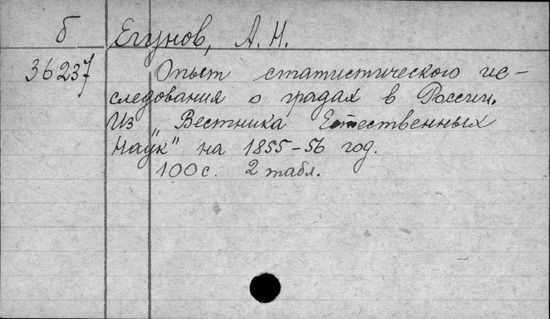 б Егунов, А. Н.
36237 Опыт статистического ис-
следования о градах в России.
Из „Вестника Естественных
Наук" на 1855-56 год.
100с. 2 табл.